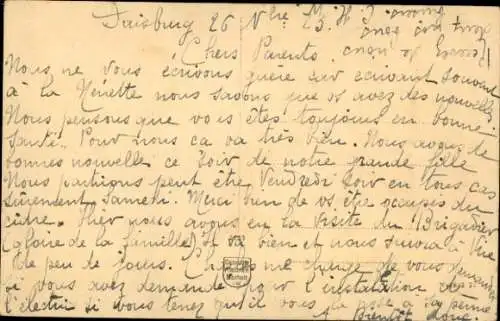 Duisburg 26 9bre 23.
Chers Parents
Nous ne vous écrivons guère car écrivant souvant
à la Venette nous savons que vs avez des nouvelles
Nous pensons que vous êtes toujours en bonne
santé. Pour nous ca va très bien. Nous avons de
bonnes nouvelle ce soir de notre grande fille
Nous partirons peut être Vendredi soir en tous cas
sûrement Samedi. Merci bien de vs être occupés du
cidre. Hier nous avons eu la visite du Brigadier
de la famille il va bien et nous suivra à Vire
de peu de jours. me charge de vous demander
si vous avez demandé pour l'installation de
l'électri si vous tenez qu'il vous la pose à sa
A bientôt donc